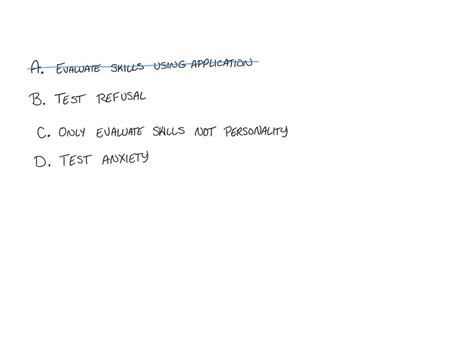 A. EVALUATE SKILLS USING APPLICATION
B. TEST REFUSAL
C. ONLY EVALUATE SKILLS NOT PERSONALITY
D. TEST ANXIETY